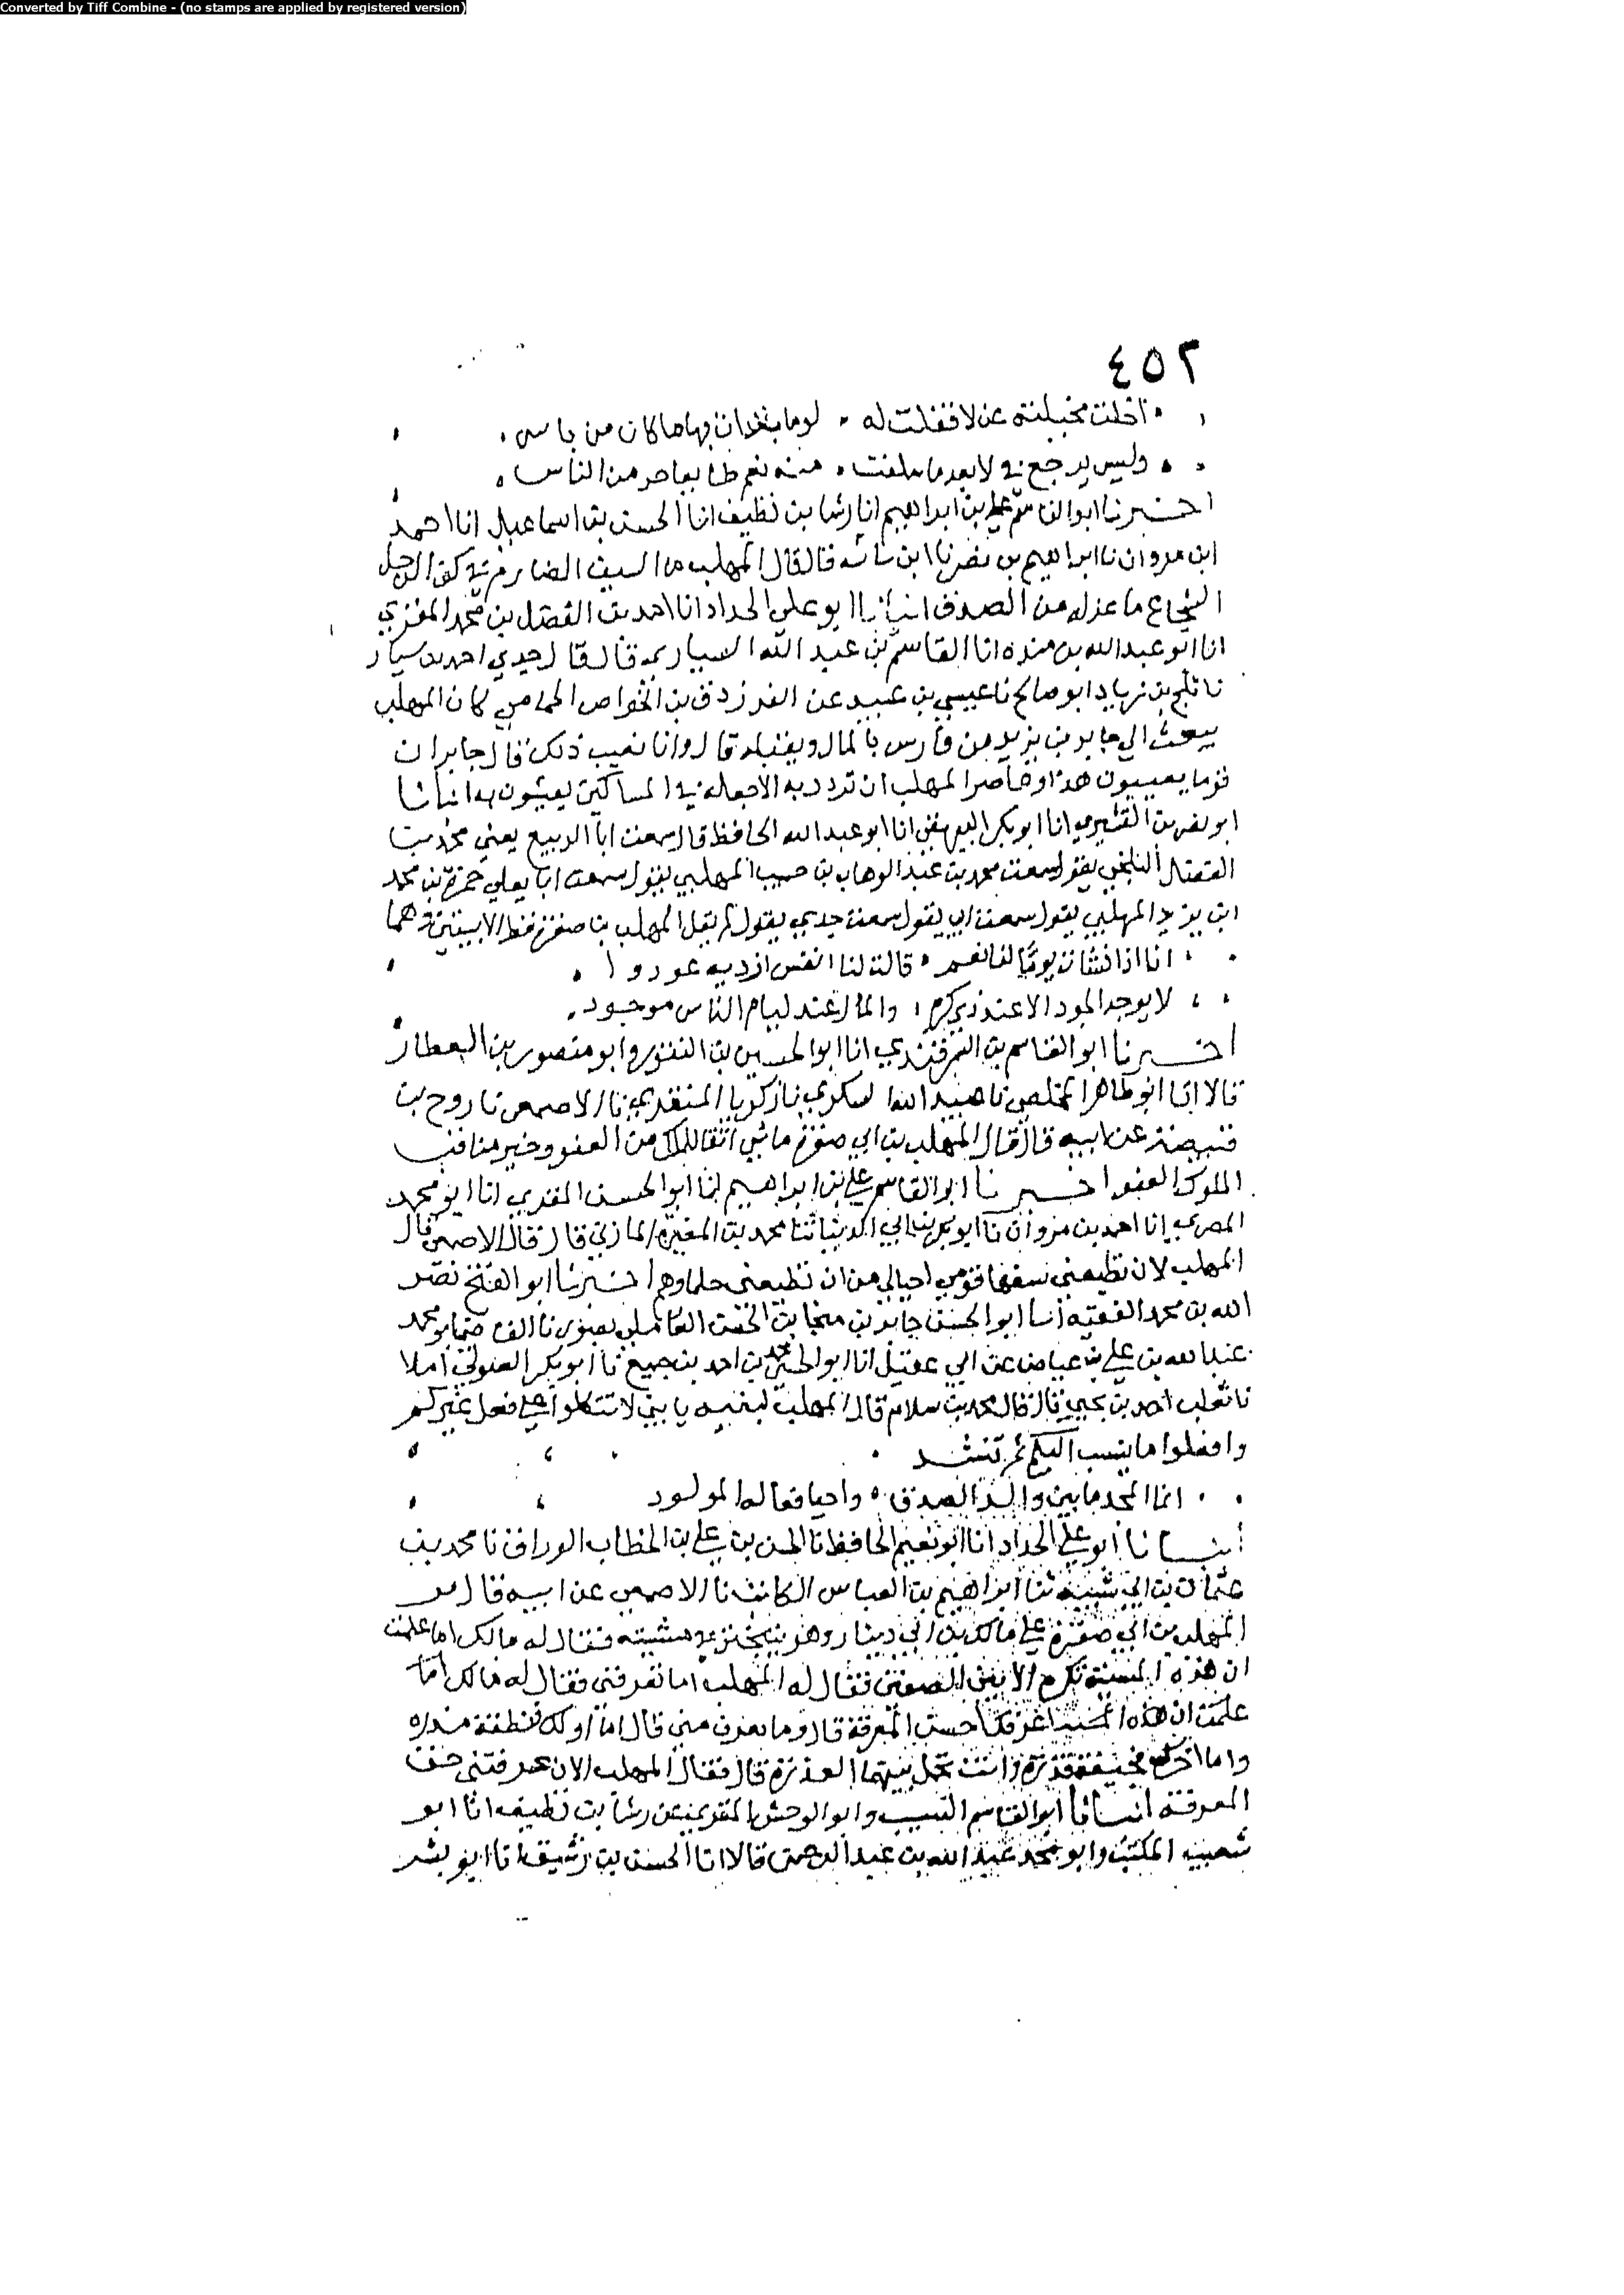 Converted by Tiff Combine - (no stamps are applied by registered version)
٤٥٢
لوما بها ما كان من باس
وليس يرجع في لا بعد ما سلفت منه نعم طايعا حر من الناس
اخبرنا ابو القاسم علي بن ابراهيم انا رشا بن نظيف انا الحسن بن اسماعيل انا احمد
ابن مروان نا ابراهيم بن نصر نا ابن قال قال المهلب ما السيف الصارم في كف الرجل
الشجاع من الصدق انبانا ابو علي الحداد انا احمد بن الفضل بن محمد المقري
انا ابو عبد الله بن منده انا القاسم بن عبد الله السياري قال قال جدي احمد بن سيار
نا بن زياد ابو صالح نا عيسى بن عبيد عن الفرزدق بن الخواص الحمامي كان المهلب
يبعث الي جابر بن يزيد من فارس بالمال ويقبله قال وانا نعيب ذلك قال جابر ان
قوما يعيبون هذا المهلب ان ترد ديه الا جعله في المساكين يعيشون به انبانا
ابو نصر بن القشيري انا ابو بكر البيهقي انا ابو عبد الله الحافظ قال سمعت ابا الربيع يعني محمد بن
الفضل البلخي يقول سمعت محمد بن عبد الوهاب بن حبيب المهلبي يقول سمعت ابا يعلي حمزة بن محمد
ابن يزيد المهلبي يقول سمعت ابي يقول سمعت جدي يقول لم يقل المهلب بن صفرة قط الا بيتين هما
انا اذا نشات يوما لنا نعم قالت لنا انفس ازديه عودوا
لا يوجد الجود الا عند ذي كرم والمال عند ليام الناس موجود
اخبرنا ابو القاسم بن السمرقندي انا ابو الحسين بن النقور وابو منصور بن العطار
قالا انا ابو طاهر المخلص نا عبيد الله السكري نا زكريا المنقري نا الاصمعي نا روح بن
قبيصة عن ابيه قال قال المهلب بن ابي صفرة ما شي ابقا للملك من العفو وخير مناقب
الملوك العفو اخبرنا ابو القاسم علي بن ابراهيم انا ابو الحسن المقري انا ابو محمد
المصري انا احمد بن مروان نا ابو بكر بن ابي الدنيا ثنا محمد بن المغيرة المازني قال قال الاصمعي قال
المهلب لان تطيعني سفها قومي احب الي من ان تطيعني حلماوهم اخبرنا ابو الفتح نصر
الله بن محمد الفقيه انا ابو الحسن جابر بن منجا بن بصور نا القاضي ابو محمد
عبد الله بن علي بن عياض عن ابي عقيل انا ابو الحسين محمد بن احمد بن جميع نا ابو بكر الصولي املا
نا ثعلب احمد بن يحيى قال قال محمد بن سلام قال المهلب لبنيه يا بني لا تتكلوا علي فعل غيركم
وافعلوا ما ينسب اليكم ثم تنشد
انما المجد ما بنى والد الصدق واحيا فعاله المولود
انبانا ابو علي الحداد انا ابو نعيم الحافظ نا الحسن بن علي بن الخطاب الوراق نا محمد بن
عثمان بن ابي شيبة ثنا ابراهيم بن العباس الكاتب نا الاصمعي عن ابيه قال مر
المهلب بن ابي صفرة علي مالك بن ابي دينار وهو يتبختر في مشيته فقال له مالك اما علمت
ان هذه المشية تكره الا بين الصفين فقال له المهلب اما تعرفني فقال له مالك اما
احسن المعرفة قال وما تعرف مني قال اما اولك فنطفة مذره
واما اخرك فجيفة قذرة وانت تحمل بينهما العذرة قال فقال المهلب الان عرفتني حق
المعرفة انبانا ابو القاسم النسيب وابو الوحش المقري عن رشا بن نظيف انا ابو
شعيب المكتب وابو محمد عبد الله بن عبد الرحمن قالا انا الحسن بن رشيق انا ابو بشر